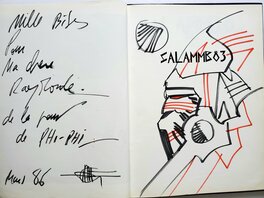 Mille Bises
Pour
Ma chère
de la part
de PHI-PHI
Mars 86
SALAMMBÔ 3